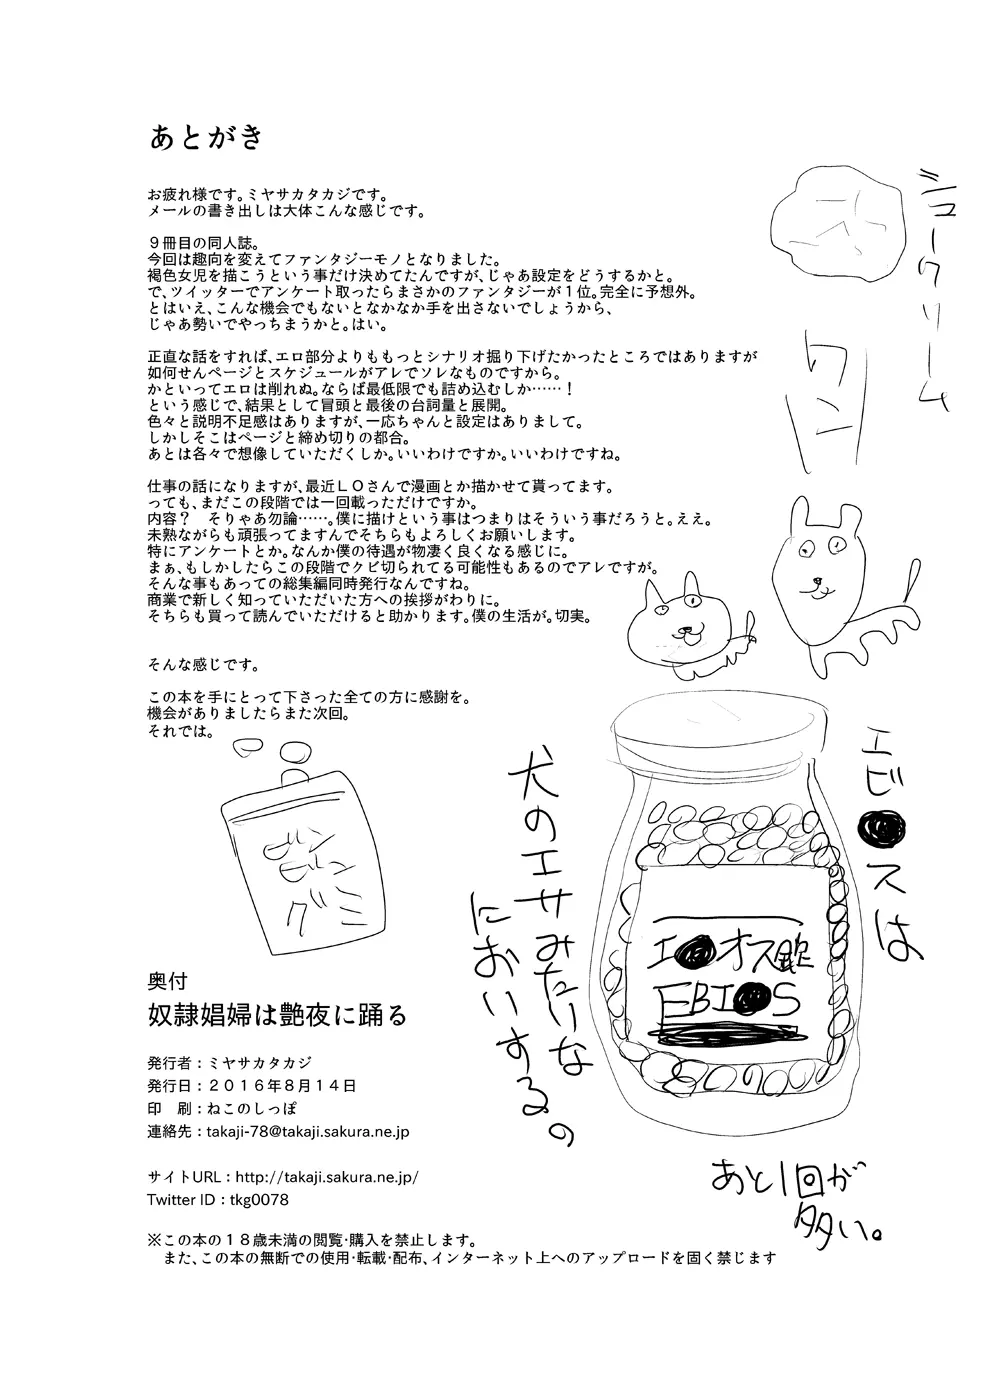 あとがき
お疲れ様です。ミヤサカタカジです。
メールの書き出しは大体こんな感じです。
9冊目の同人誌。
今回は趣向を変えてファンタジーモノとなりました。
褐色女児を描こうという事だけ決めてたんですが、じゃあ設定をどうするかと。
で、ツイッターでアンケート取ったらまさかのファンタジーが1位。完全に予想外。
とはいえ、こんな機会でもないとなかなか手を出さないでしょうから、
じゃあ勢いでやっちまうかと。はい。
正直な話をすれば、エロ部分よりももっとシナリオ掘り下げたかったところではありますが
如何せんページとスケジュールがアレでソレなものですから。
かといってエロは削れぬ。ならば最低限でも詰め込むしか……！
という感じで、結果として冒頭と最後の台詞量と展開。
色々と説明不足感はありますが、一応ちゃんと設定はありまして。
しかしそこはページと締め切りの都合。
あとは各々で想像していただくしか。いいわけですか。いいわけですね。
仕事の話になりますが、最近LOさんで漫画とか描かせて貰ってます。
っても、まだこの段階では一回載っただけですか。
内容？　そりゃあ勿論……。僕に描けという事はつまりはそういう事だろうと。ええ。
未熟ながらも頑張ってますんでそちらもよろしくお願いします。
特にアンケートとか。なんか僕の待遇が物凄く良くなる感じに。
まぁ、もしかしたらこの段階でクビ切られてる可能性もあるのでアレですが。
そんな事もあっての総集編同時発行なんですね。
商業で新しく知っていただいた方への挨拶がわりに。
そちらも買って読んでいただけると助かります。僕の生活が。切実。
そんな感じです。
この本を手にとって下さった全ての方に感謝を。
機会がありましたらまた次回。
それでは。
シュークリーム
ワン
エビ●スは
犬のエサみたいな
においする。
エ●オス錠
EBI●S
あと1回が
多い。
グミ
奥付
奴隷娼婦は艶夜に踊る
発行者：ミヤサカタカジ
発行日：2016年8月14日
印　刷：ねこのしっぽ
連絡先：takaji-78@takaji.sakura.ne.jp
サイトURL：http://takaji.sakura.ne.jp/
Twitter ID：tkg0078
※この本の18歳未満の閲覧・購入を禁止します。
また、この本の無断での使用・転載・配布、インターネット上へのアップロードを固く禁じます